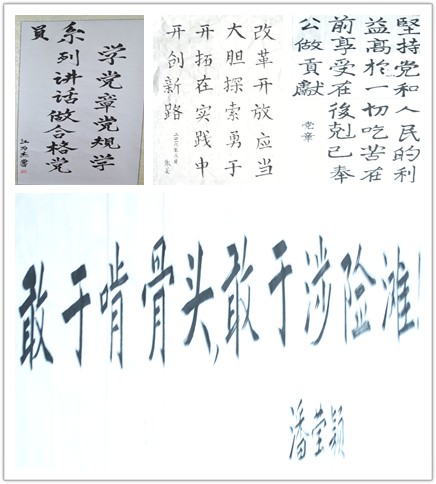 学党章党规学
系列讲话做合格党
员
改革开放应当
大胆探索勇于
开拓在实践中
开创新路
堅持党和人民的利
益高於一切吃苦在
前享受在後剋己奉
公做貢獻
党章
敢于啃骨头,敢于涉险滩!
潘莹颖